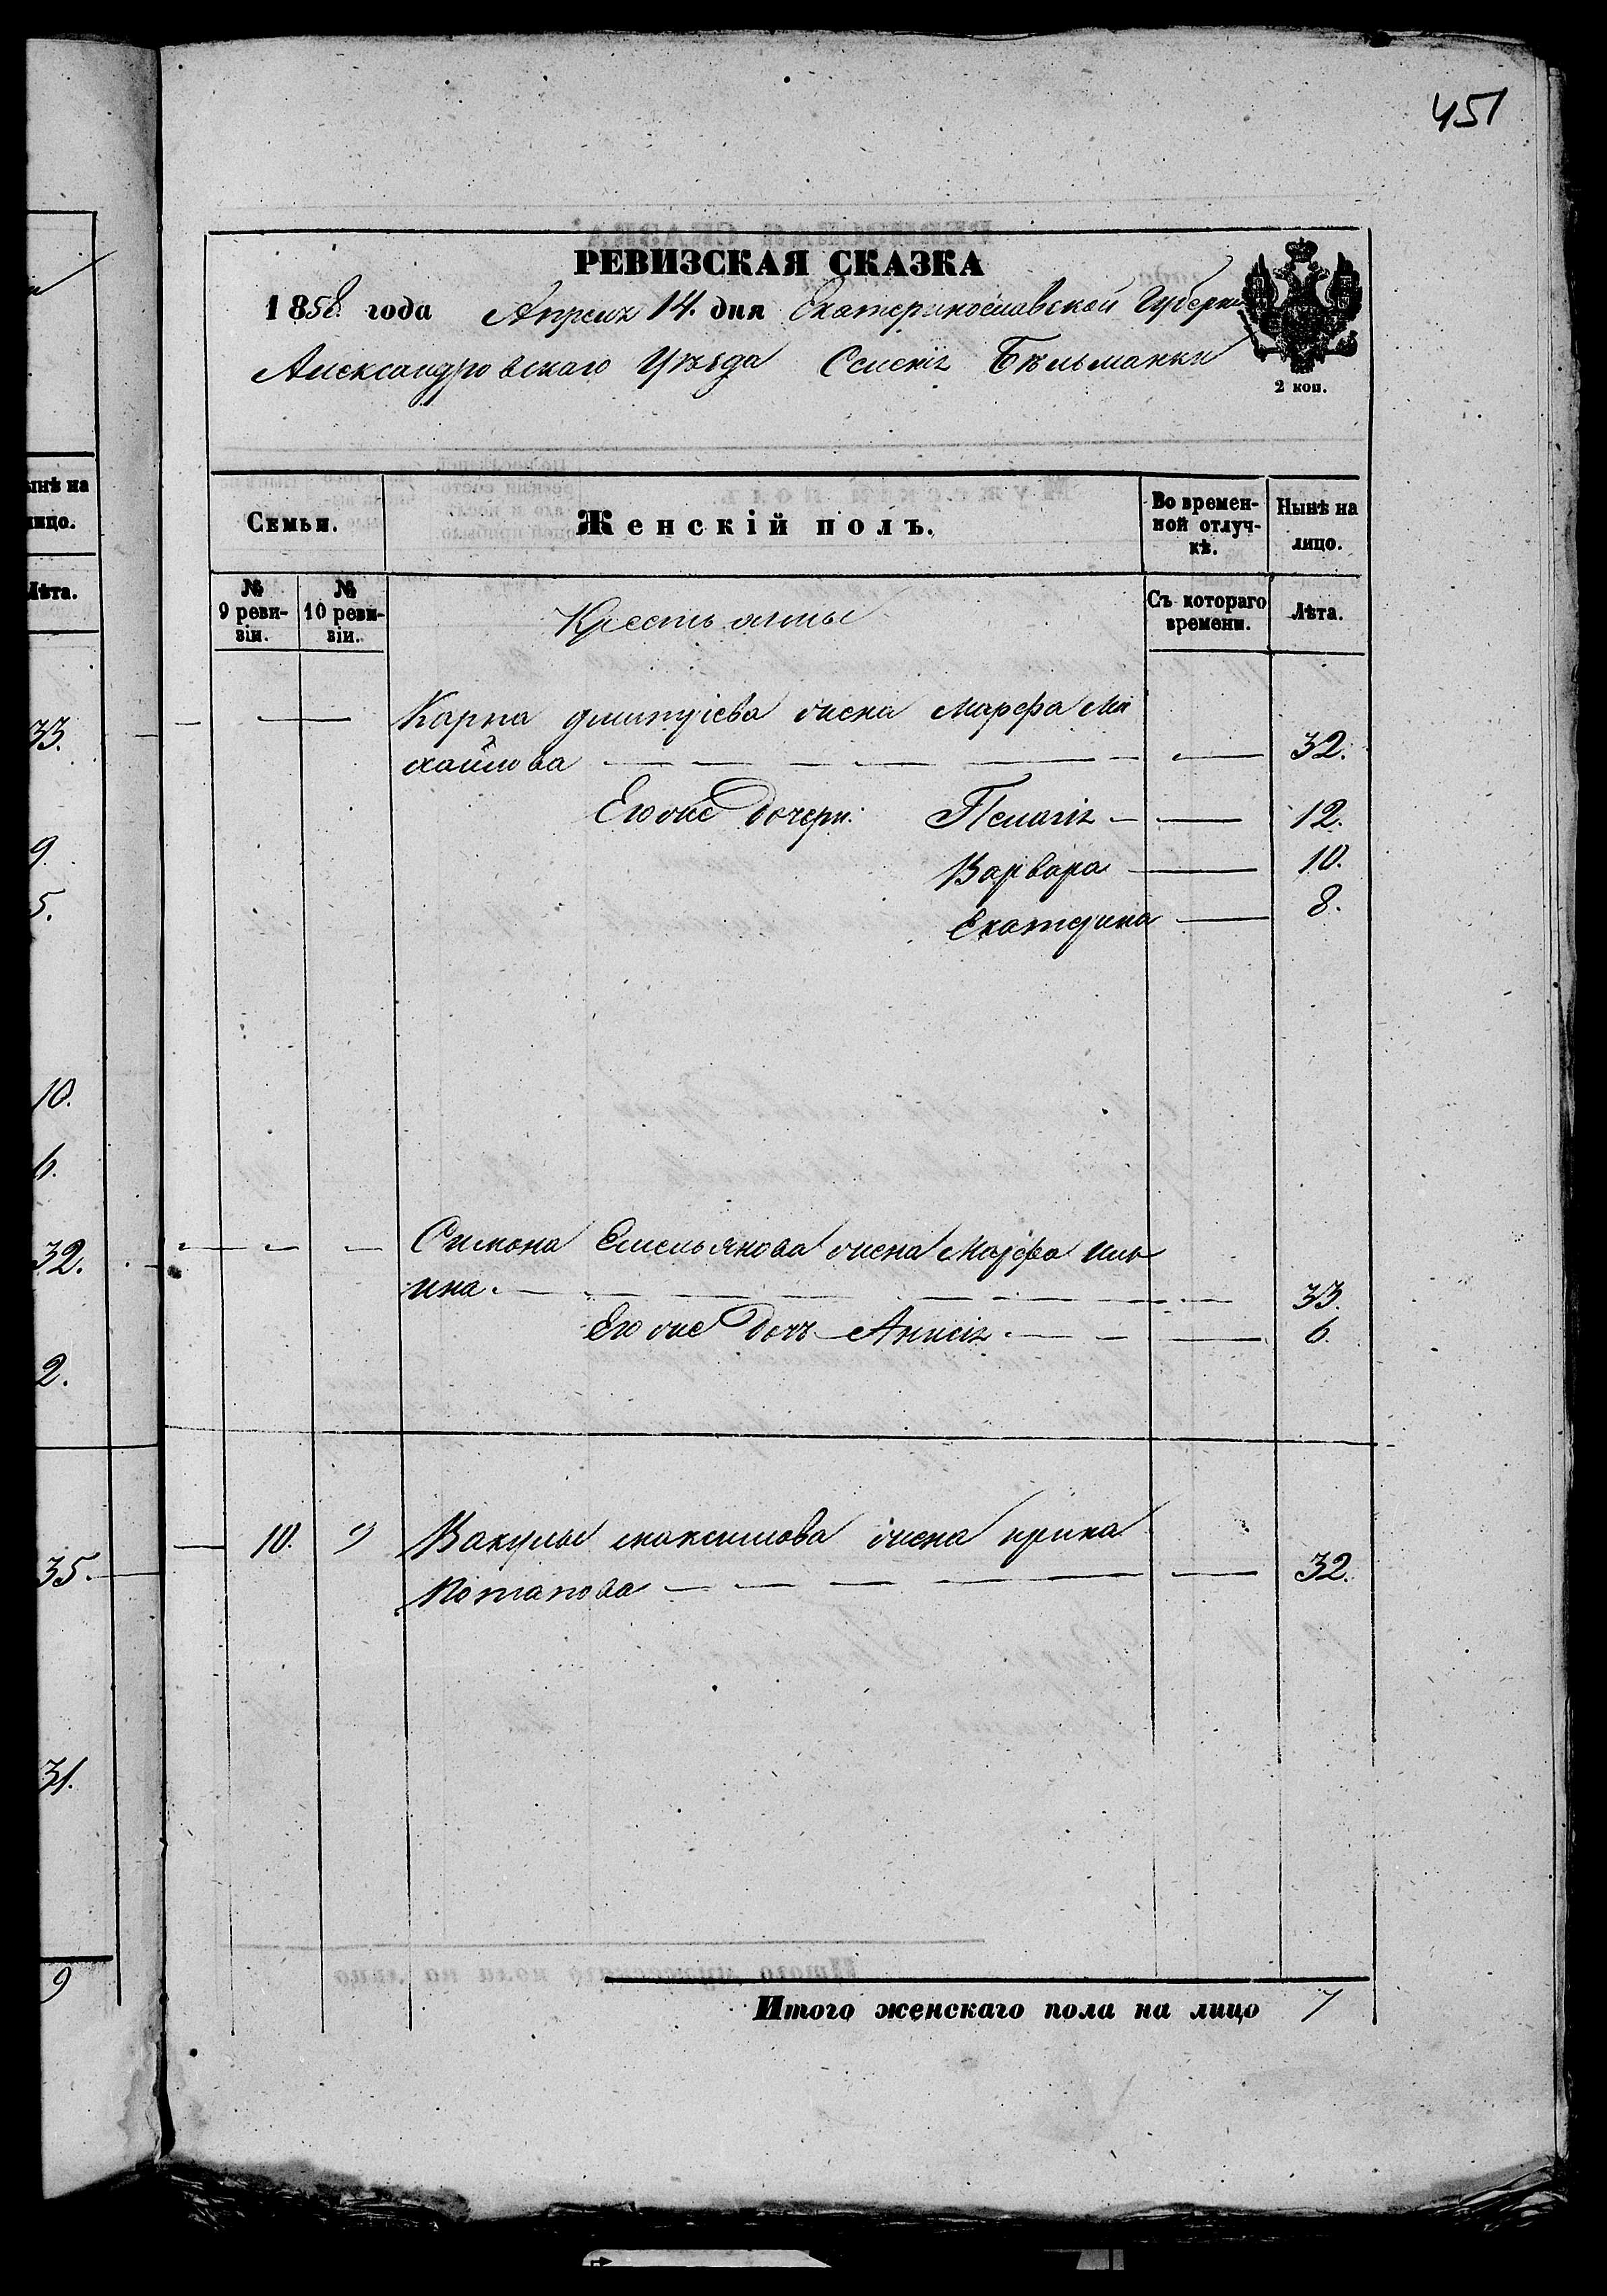 451
РЕВИЗСКАЯ СКАЗКА
1858 года Апреля 14. дня Екатеринославской Губерни
Александровскаго Уѣзда Селенія Бѣльманки
2 коп.
Семьи.
Женскій полъ.
Во времен-
ной отлуч-
кѣ.
Нынѣ на
лицо.
№
9 реви-
зіи.
№
10 реви-
зіи.
Съ котораго
времени.
Лѣта.
Крестьянты
Карпа Дмитріева жена Марфа Ми
хайлова 32.
Его же дочери: Пелагія 12.
Варвара 10.
Екатерина 8.
Симона Емельянова жена Марфа Иль
ина. 33.
Его же дочь Анисія 6.
10. 9 Вакулы Максимова жена Ирина
Потапова 32.
Итого женскаго пола на лицо 7
ынѣ на
лицо.
Лѣта.
33.
9.
5.
10.
6.
32.
2.
35.
31.
9